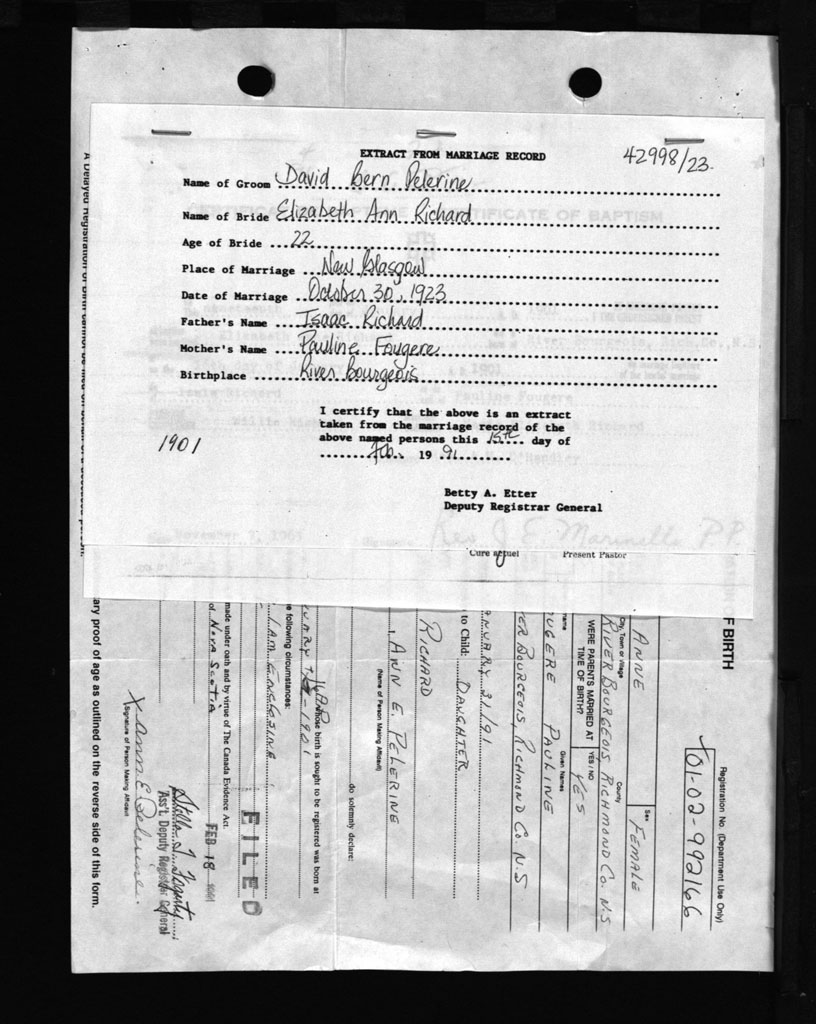 EXTRACT FROM MARRIAGE RECORD
42998/23
Name of Groom David Bern Pelerine
Name of Bride Elizabeth Ann Richard
Age of Bride 22
Place of Marriage New Glasgow
Date of Marriage October 30, 1923
Father's Name Isaac Richard
Mother's Name Pauline Fougere
Birthplace River Bourgeois
I certify that the above is an extract
taken from the marriage record of the
above named persons this 15th day of
Feb. 19 91
1901
Betty A. Etter
Deputy Registrar General
November 7, 1965
Rev J E Marinelli P.P.
Cure actuel Present Pastor
OF BIRTH
Registration No. (Department Use Only)
01-02-992166
ANNE
Sex
FEMALE
City, Town or Village
County
RIVER BOURGEOIS, RICHMOND CO. N.S
WERE PARENTS MARRIED AT
TIME OF BIRTH?
YES / NO
YES
Given Names
UGERE PAULINE
TER BOURGEOIS, RICHMOND CO. N.S
ANUARY 21/91
to Child: DAUGHTER
RICHARD
I, ANN E. PELERINE
(Name of Person Making Affidavit)
do solemnly declare:
whose birth is sought to be registered was born at
UARY 1901
e following circumstances:
FILED
made under oath and by virtue of The Canada Evidence Act.
of NOVA SCOTIA
FEB 18
Stella J. Fogarty
Ass't. Deputy Registrar General
X Ann E. Pelerine.
(Signature of Person Making Affidavit)
ary proof of age as outlined on the reverse side of this form.